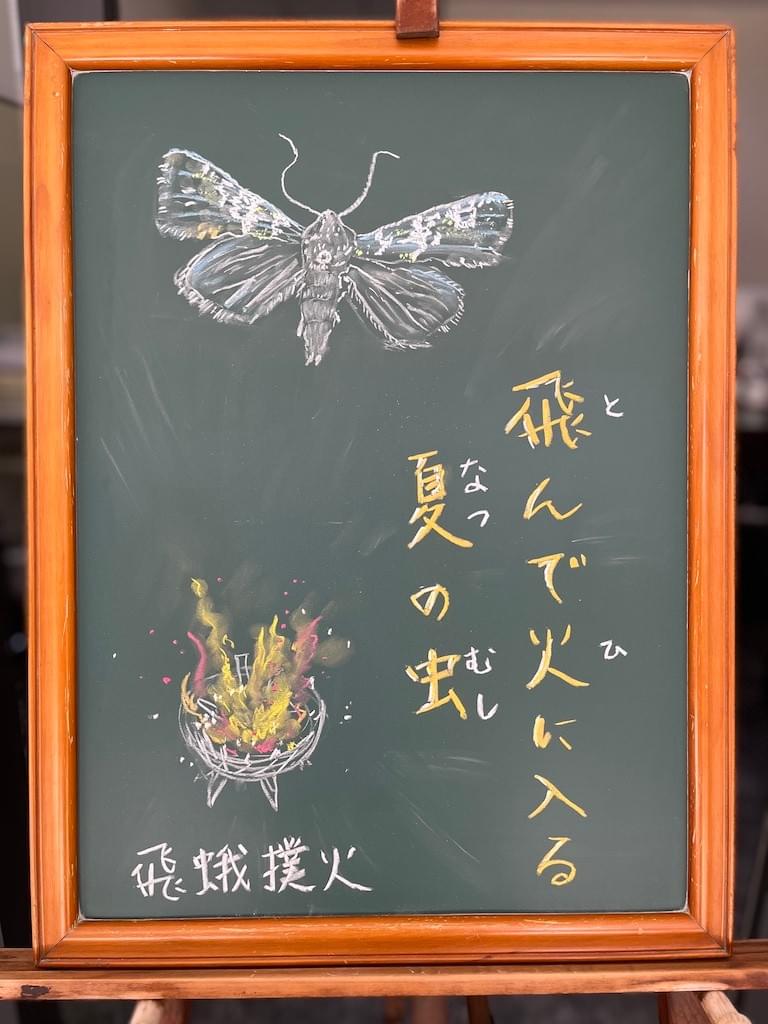 飛んで火に入る
と
ひ
夏の虫
なつ
むし
飛蛾撲火